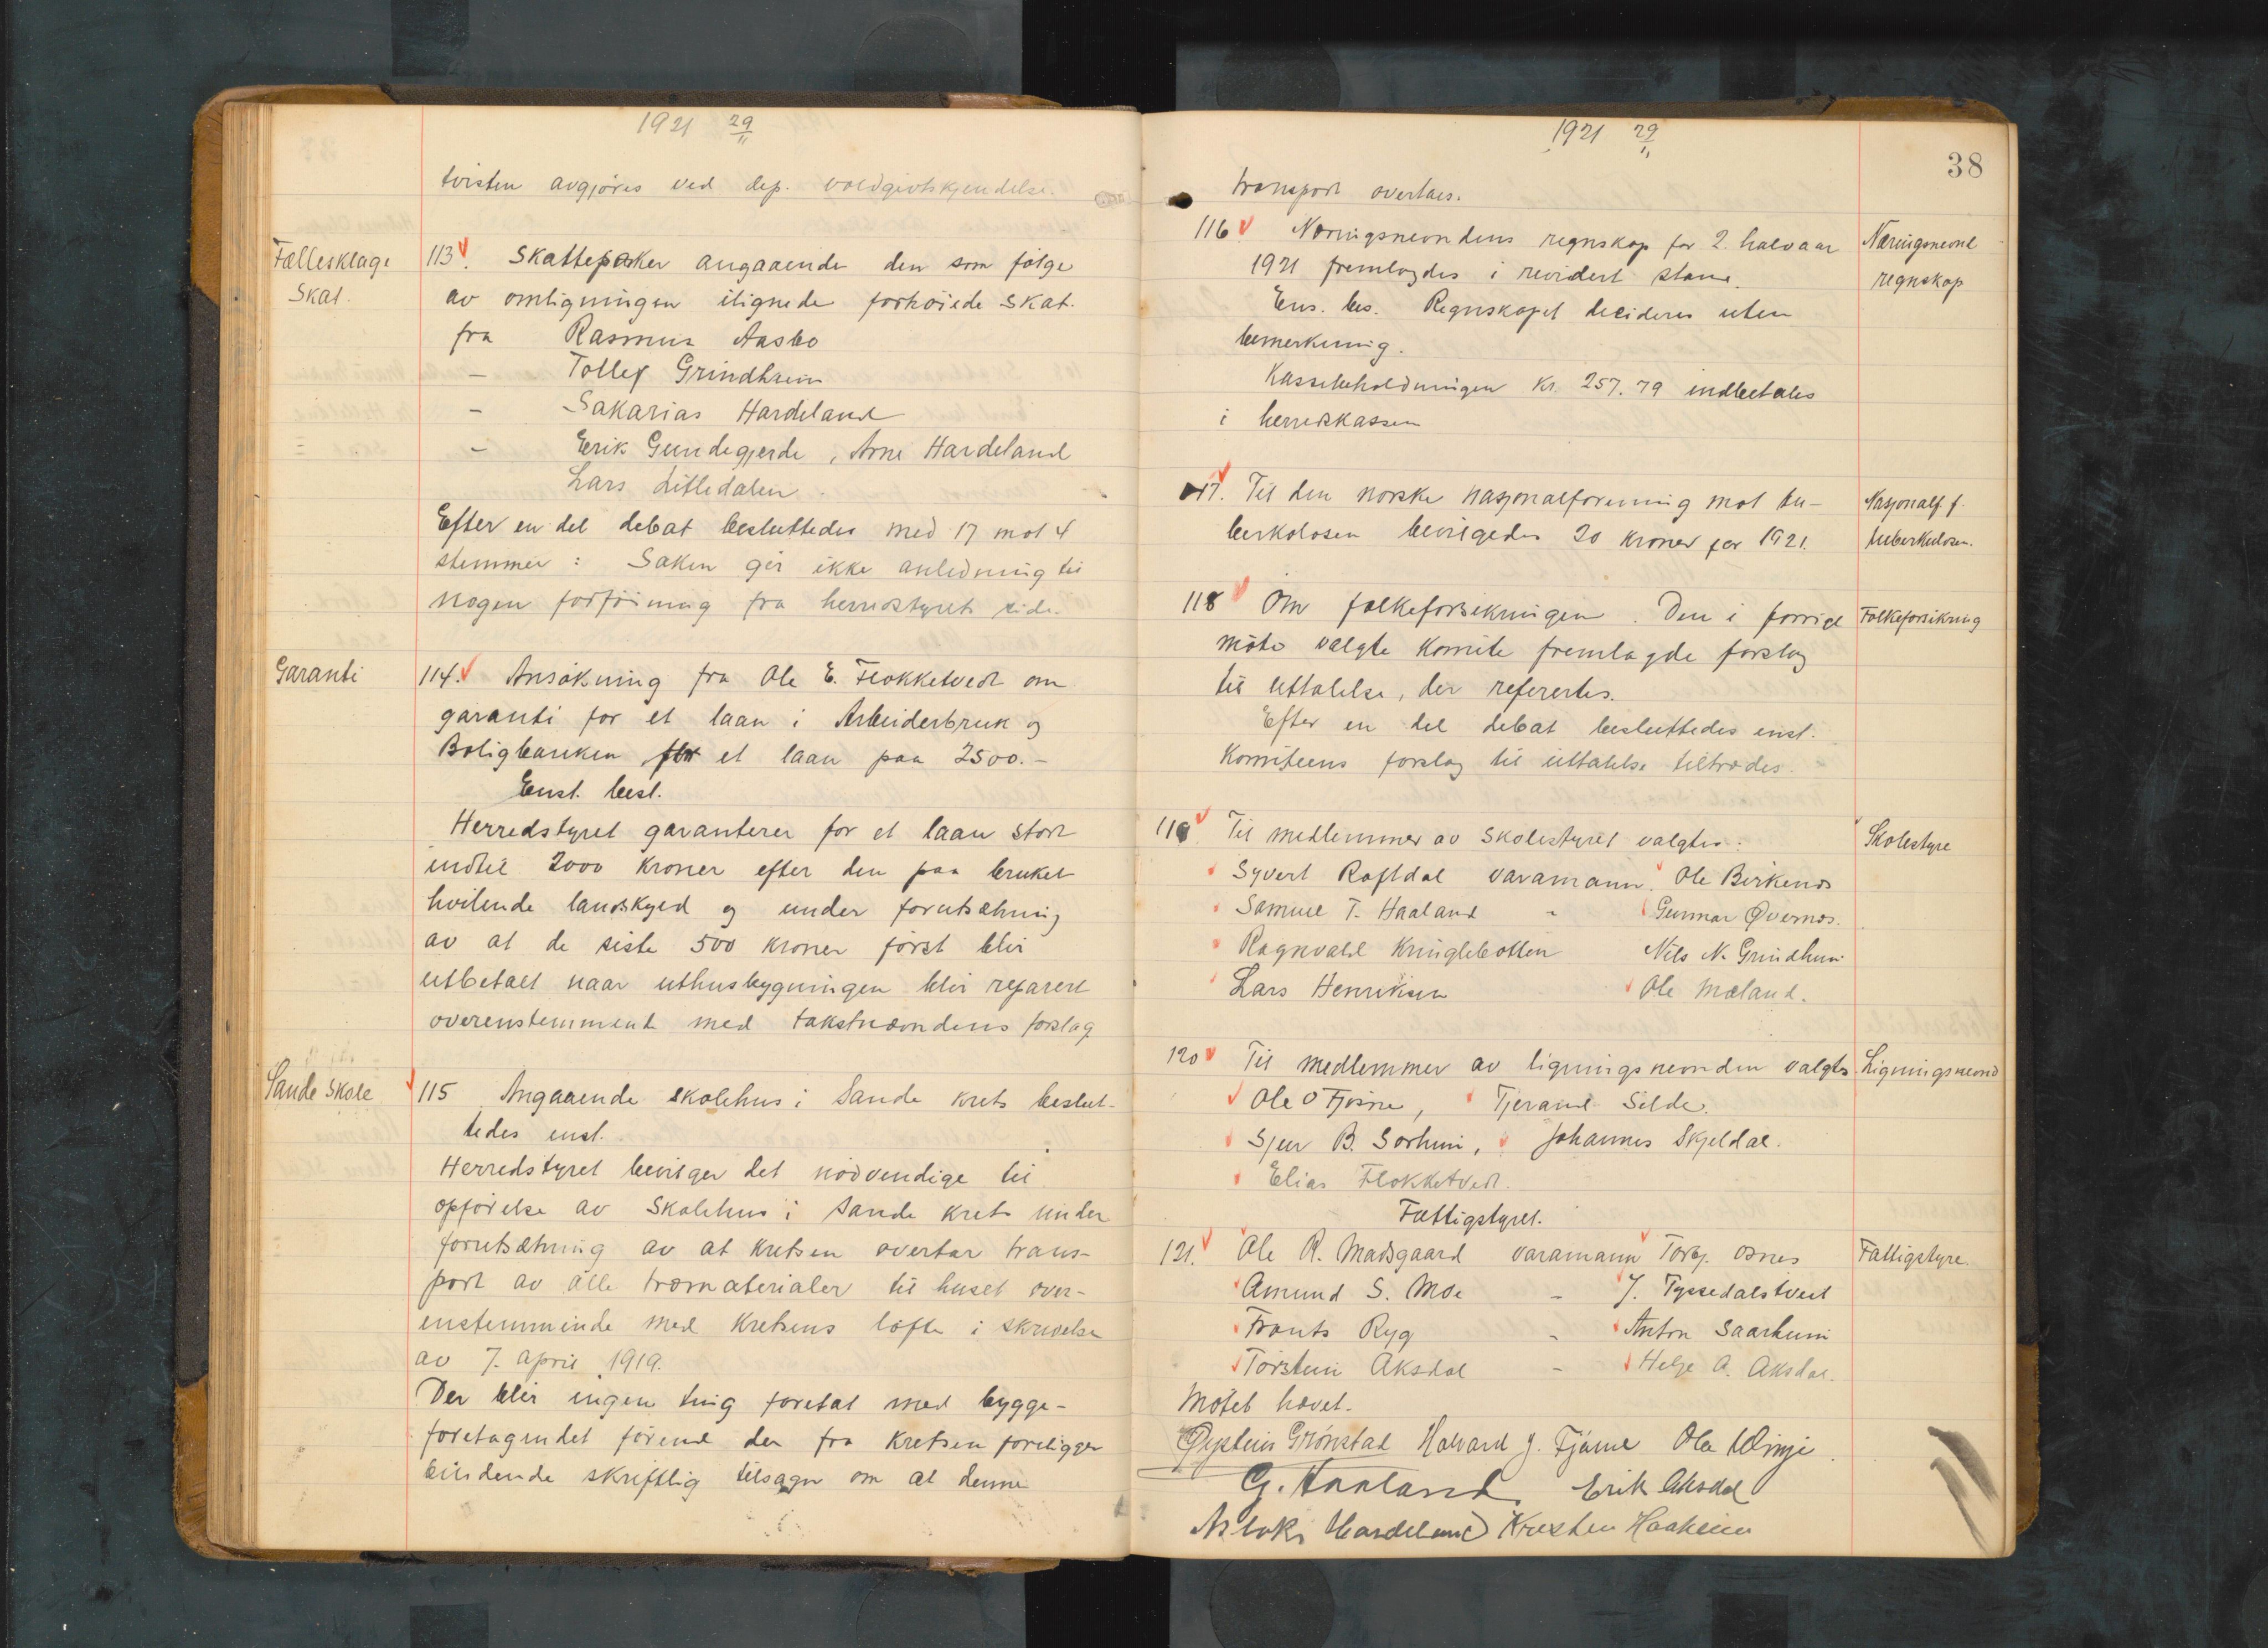 1921 29/11
tvisten avgjöres ved dep. voldgivtskjendelse.
Fællesklage
Skat.
113. Skattepaaker angaaende den som følge
av omligningen ilignede forhöiede skat.
fra Rasmus Aasbo
– Tollef Grindheim
– Sakarias Hardeland
– Erik Gundegjerde, Arne Hardeland
Lars Litledalen.
Efter en del debat besluttedes med 17 mot 4
stemmer: Saken gir ikke anledning til
nogen forföining fra herredstyrets side.
Garanti
114. Ansökning fra Ole E. Flokketvedt om
garanti for et laan i Arbeiderbruk og
Boligbanken for et laan paa 2500.–
Enst. besl.
Herredstyret garanterer for et laan stort
indtil 2000 kroner efter den paa bruket
hvilende landskyld og under forutsætning
av at de siste 500 kroner först blir
utbetalt naar uthusbygningen blir reparert
overenstemmende med takstnævndens forslag
Sande skole
115. Angaaende skolehus i Sande krets beslut-
tedes enst.
Herredstyret bevilger det nödvendige til
opförelse av Skolehus i Sande krets under
forutsætning av at kretsen overtar trans-
port av alle træmaterialer til huset over-
enstemmende med kretsens löfte i skrivelse
av 7. april 1919.
Der blir ingen ting foretat med bygge-
foretagendet förend der fra kretsen foreligger
bindende skriftlig tilsagn om at denne
1921 29/11
38
transport overtaes.
116. Næringsnevndens regnskap for 2. halvaar
1921 fremlagdes i revidert stand.
Ens. bes. Regnskapet decideres uten
bemerkning.
Kassebeholdningen kr. 257.79 indbetales
i herredskassen
Næringsnevnd
regnskap
117. Til den norske nasjonalforening mot tu-
berkolosen bevilgedes 20 kroner for 1921.
Nasjonalf. f.
tuberkulosen.
118 Om folkeforsikringen. Den i forrige
möte valgte komite fremlagde forslag
til uttalelse, der refertes.
Efter en del debat besluttedes enst.
Komiteens forslag til uttalelse tiltrædes.
Folkeforsikring
119 Til medlemmer av skolestyret valgtes:
Syvert Raftdal varamann Ole Birkenes
Samuel T. Haaland – Gunnar Øvernes.
Ragnvald Kringlebotten Nils N. Grindheim
Lars Henriksen Ole Mæland.
Skolestyre
120 Til medlemmer av ligningsnevnden valgtes
Ole O Fjösne, Tjerand Silde.
Sjur B. Sörheim, Johannes Skjeldal.
Elias Flokketvedt.
Ligningsnevnd
Fattigstyret.
121. Ole R. Madsgaard varamann Torbj. Osnes
Amund S. Moe – J. Tyssedalstvedt
Frants Ryg – Anton Saarheim
Torstein Aksdal – Helje A. Aksdal.
Fattigstyre.
Mötet hævet.
Øystein Grönstad Halvard J. Fjæme Ola Vinje
G. Haaland Erik Aksdal
Aslak Hardeland Kristen Haaheim